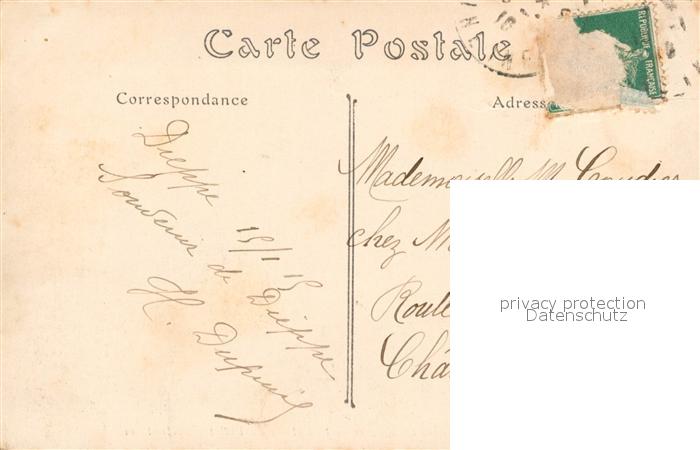 Carte Postale
RÉPUBLIQUE FRANÇAISE
Correspondance
Adresse
Dieppe 15/1 15
Souvenir de Dieppe
H.
Mademoiselle M.
chez M
Route
Châ
privacy protection
Datenschutz